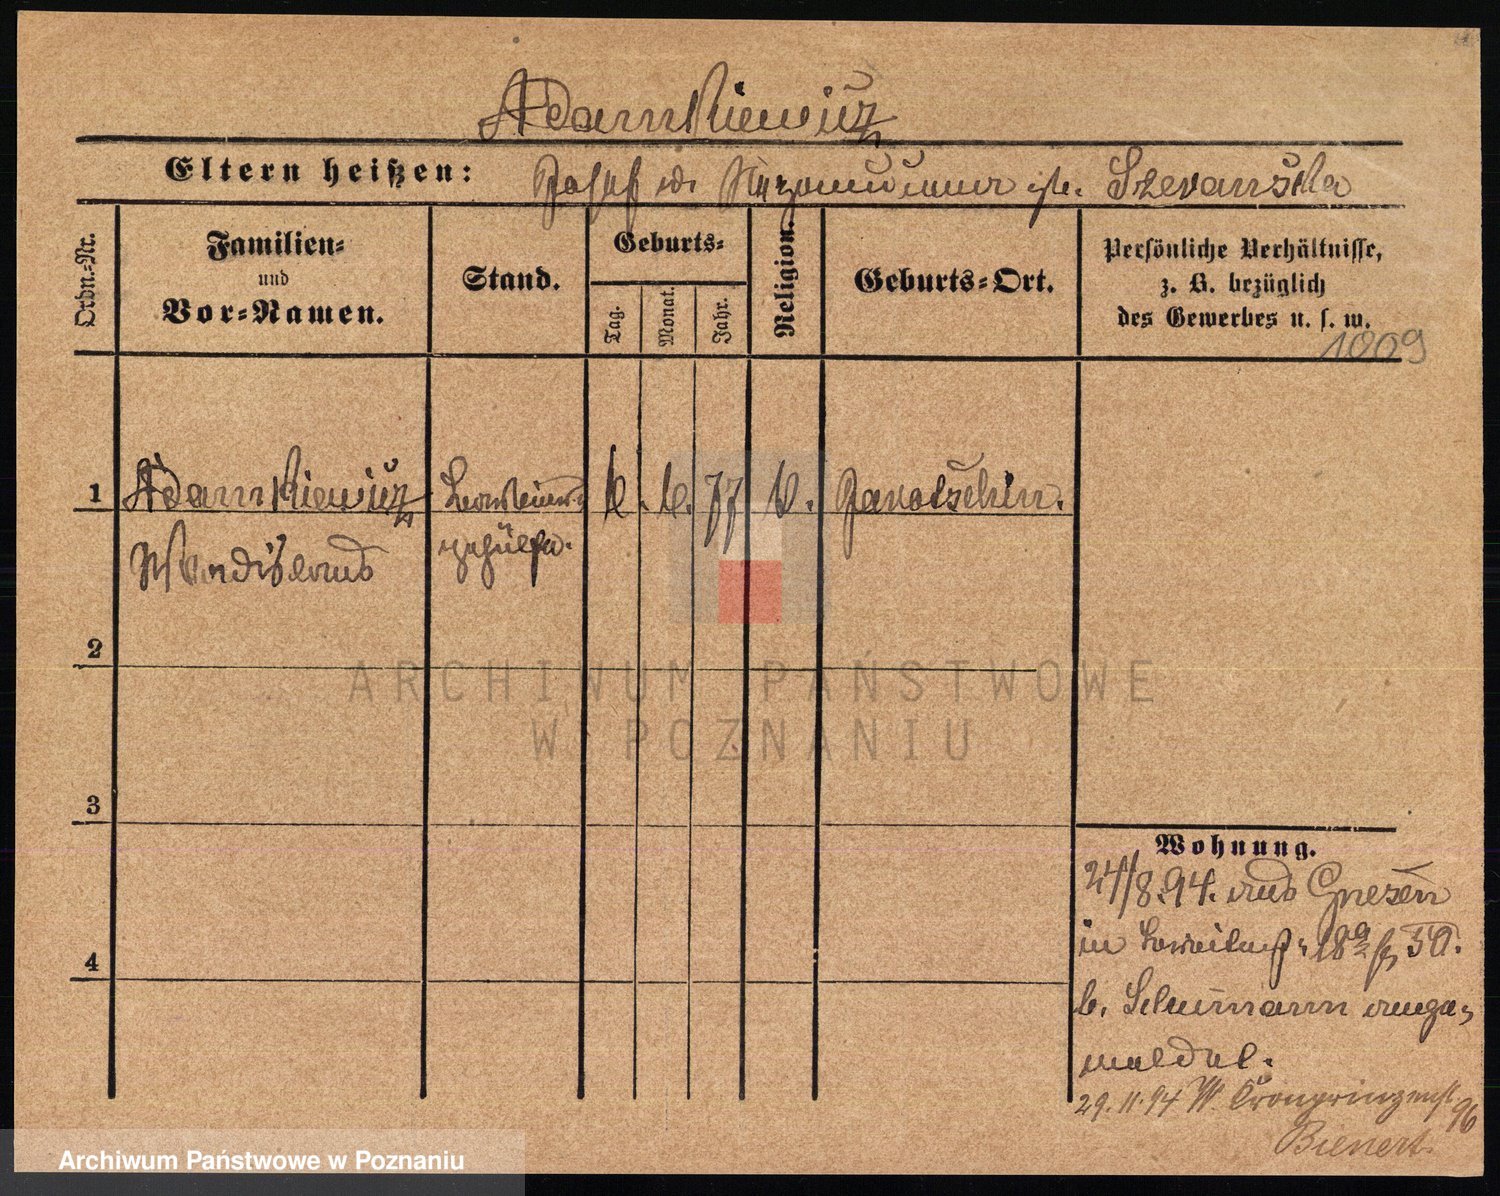 Adamkiewicz
Eltern heißen: Josef u. geb. Szeranska
Ordn.-Nr.
Familien-
und
Vor-Namen.
Stand.
Geburts-
Tag.
Monat.
Jahr.
Religion.
Geburts-Ort.
Persönliche Verhältnisse,
z. B. bezüglich
des Gewerbes u. s. w.
1009
1 Adamkiewicz 6. 6. 77 k. Jarotschin.
Wladislaus
gehülfe.
2
3
4
Wohnung.
24/8.94. aus Gnesen
in 18a
b. Schumann ange-
meldet.
29.11.94 W. Kronprinzenst. 96
Bienert.
ARCHIWUM PAŃSTWOWE
W POZNANIU
Archiwum Państwowe w Poznaniu